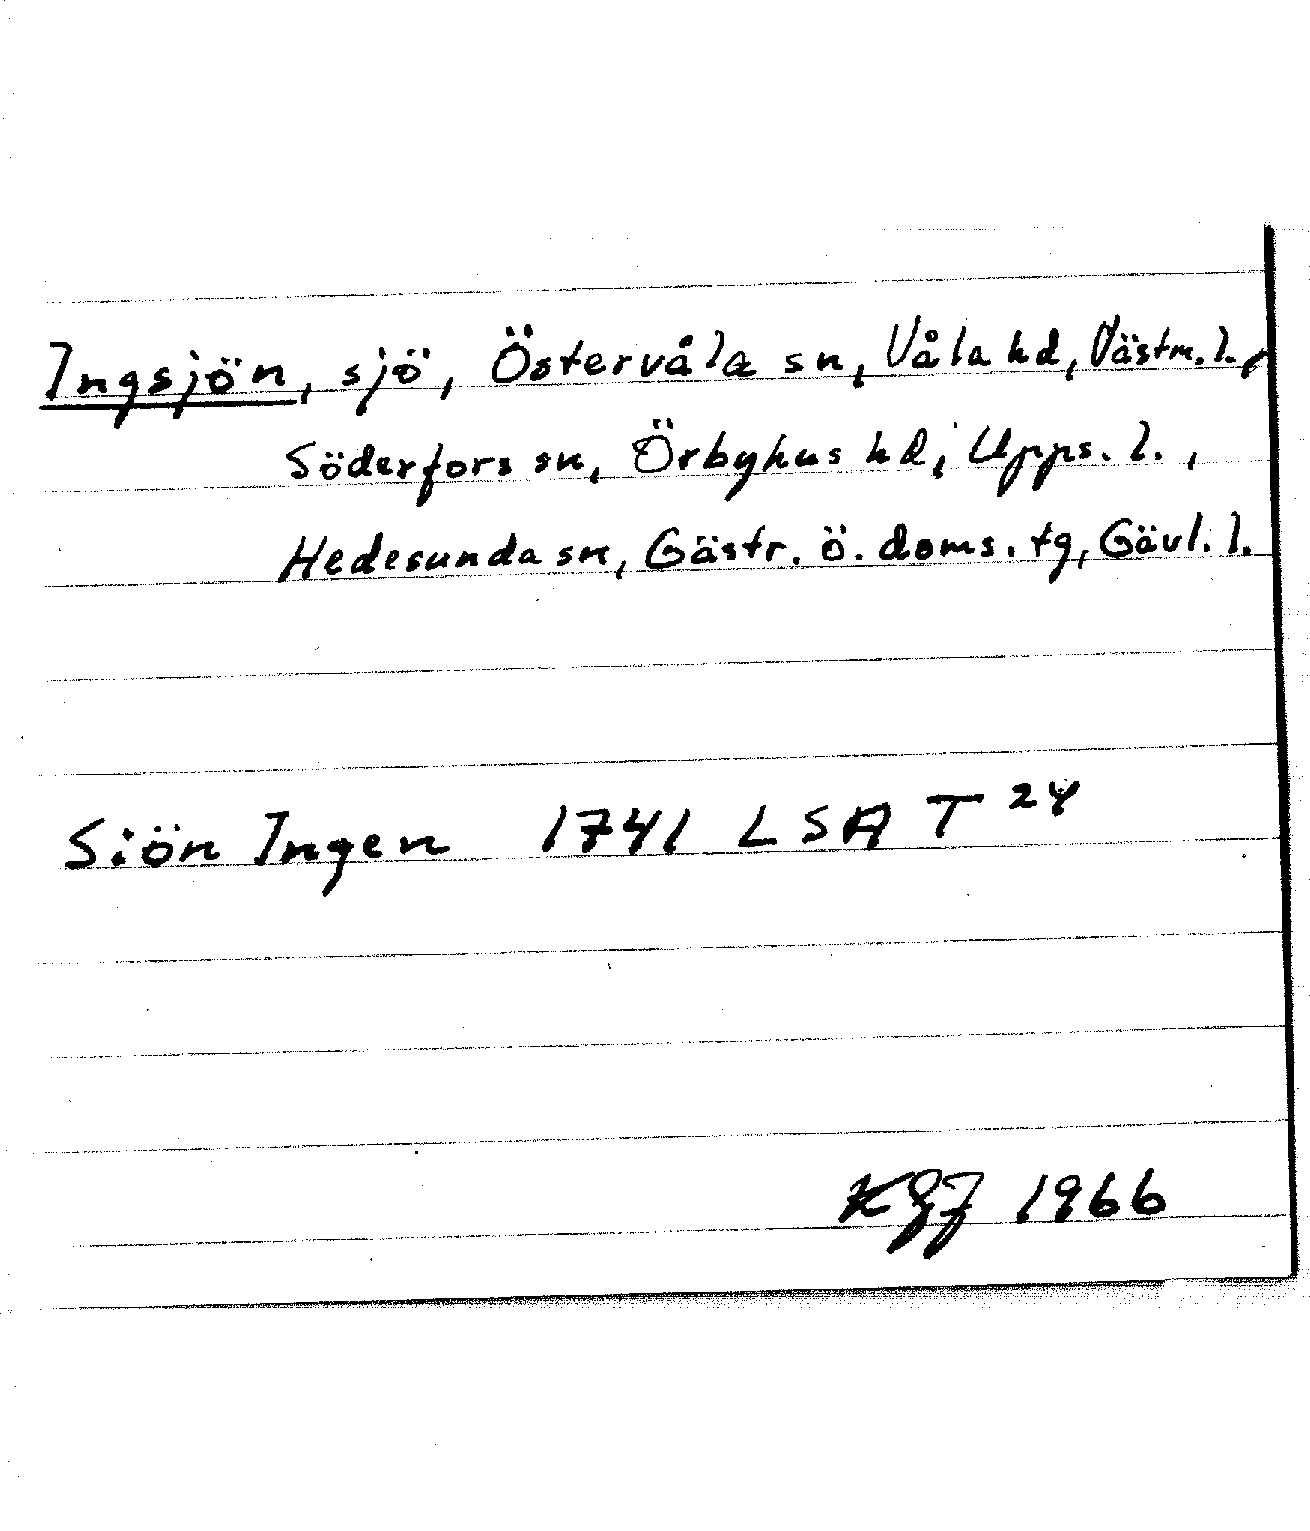 Ingsjön, sjö, Östervåla sn, Våla hd, Västm. l.,
Söderfors sn, Örbyhus hd, Upps. l.,
Hedesunda sn, Gästr. ö. doms. tg, Gävl. l.
Siön Ingen 1741 LSA T 24
1966